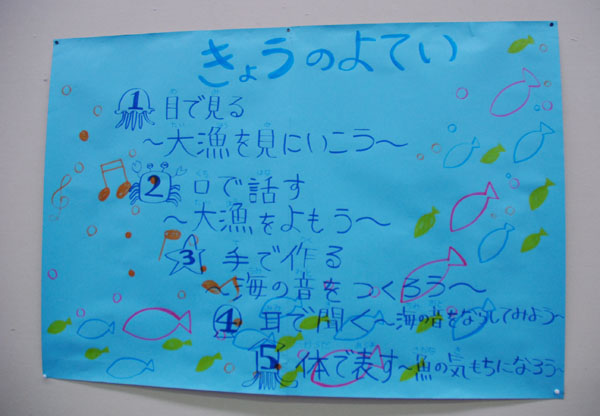 きょうのよてい
1 目で見る
～大漁を見にいこう～
2 口で話す
～大漁をよもう～
3 手で作る
～海の音をつくろう～
4 耳で聞く～海の音をならしてみよう～
5 体で表す～魚の気もちになろう～